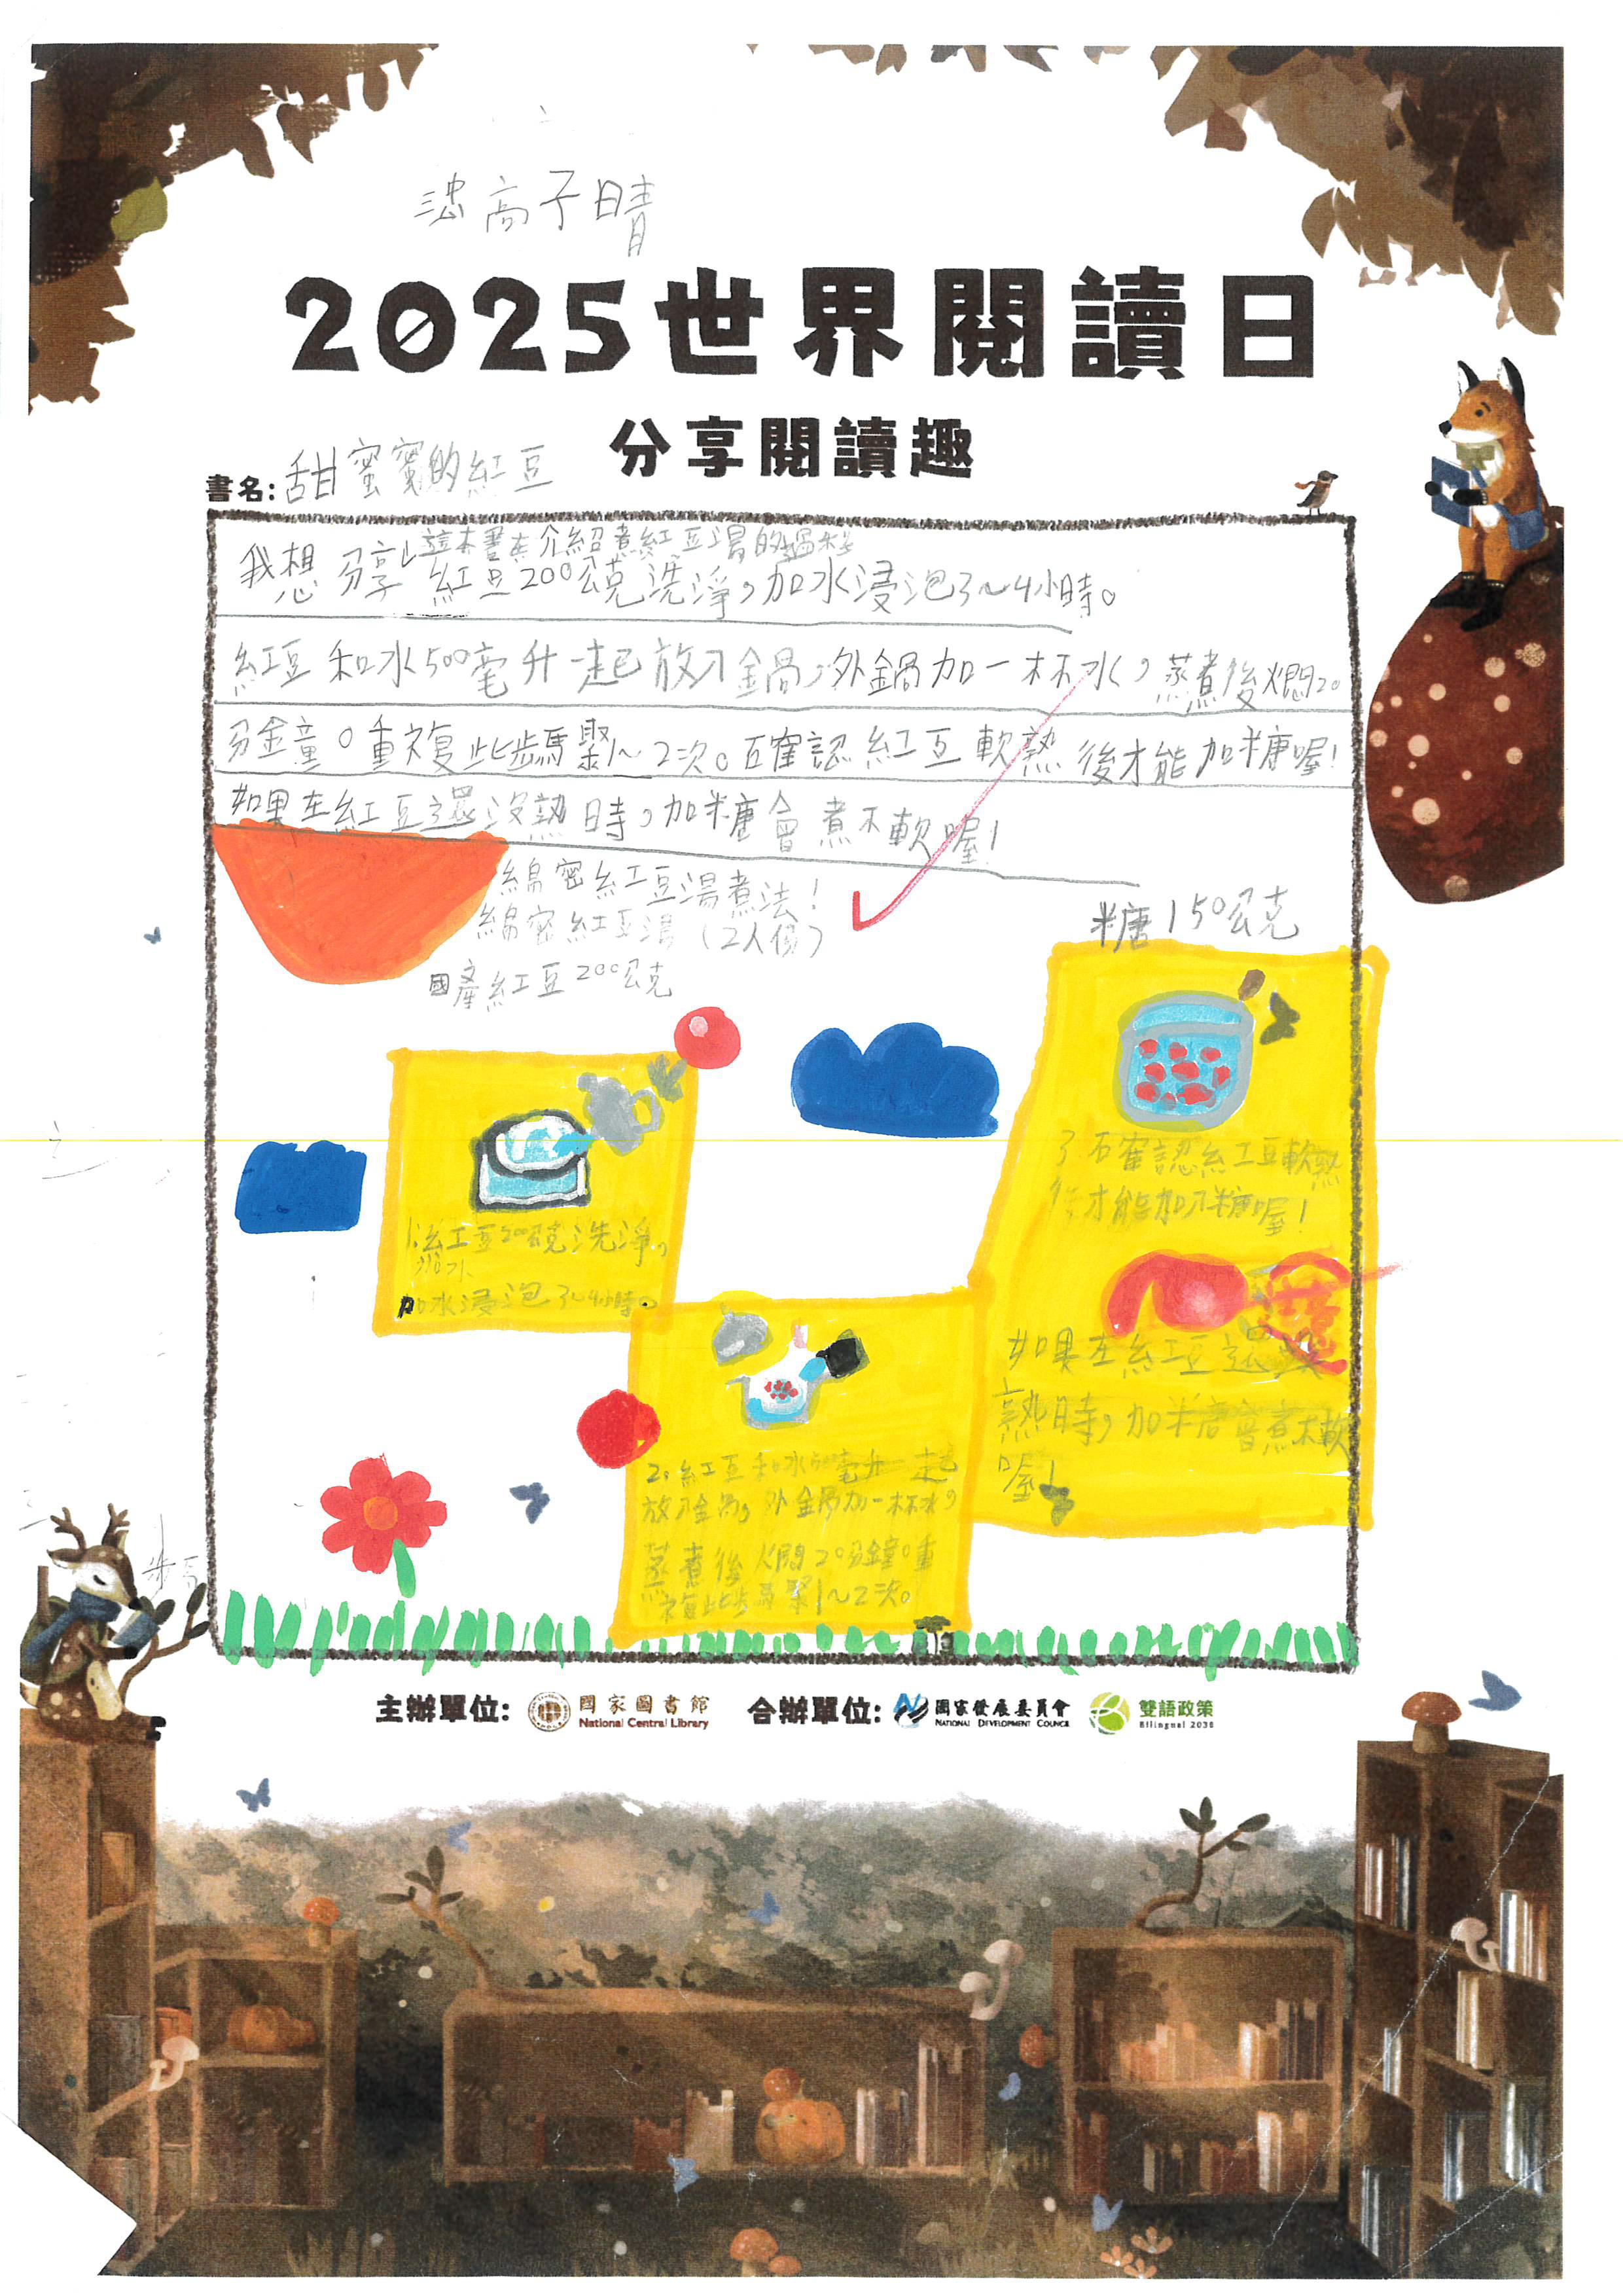 高子晴
2025世界閱讀日
分享閱讀趣
書名:甜蜜蜜的紅豆
這本書在介紹煮紅豆湯的過程
我想分享 紅豆200公克洗淨,加水浸泡3~4小時。
紅豆和水500毫升一起放入鍋,外鍋加一杯水,蒸煮後燜20
分鐘。重複此步驟1~2次。確認紅豆軟熟後才能加糖喔!
如果在紅豆還沒熟時,加糖會煮不軟喔!
綿密紅豆湯煮法!
綿密紅豆湯(2人份)
國產紅豆200公克
糖150公克
1.紅豆200公克洗淨,
加水
加水浸泡3~4小時。
2.紅豆和水500毫升一起
放入鍋,外鍋加一杯水,
蒸煮後燜20分鐘。重
複此步驟1~2次。
3.確認紅豆軟熟
後才能加入糖喔!
如果在紅豆還沒
熟時,加糖會煮不軟
喔!
主辦單位: 國家圖書館 National Central Library 合辦單位: 國家發展委員會 NATIONAL DEVELOPMENT COUNCIL 雙語政策 Bilingual 2030